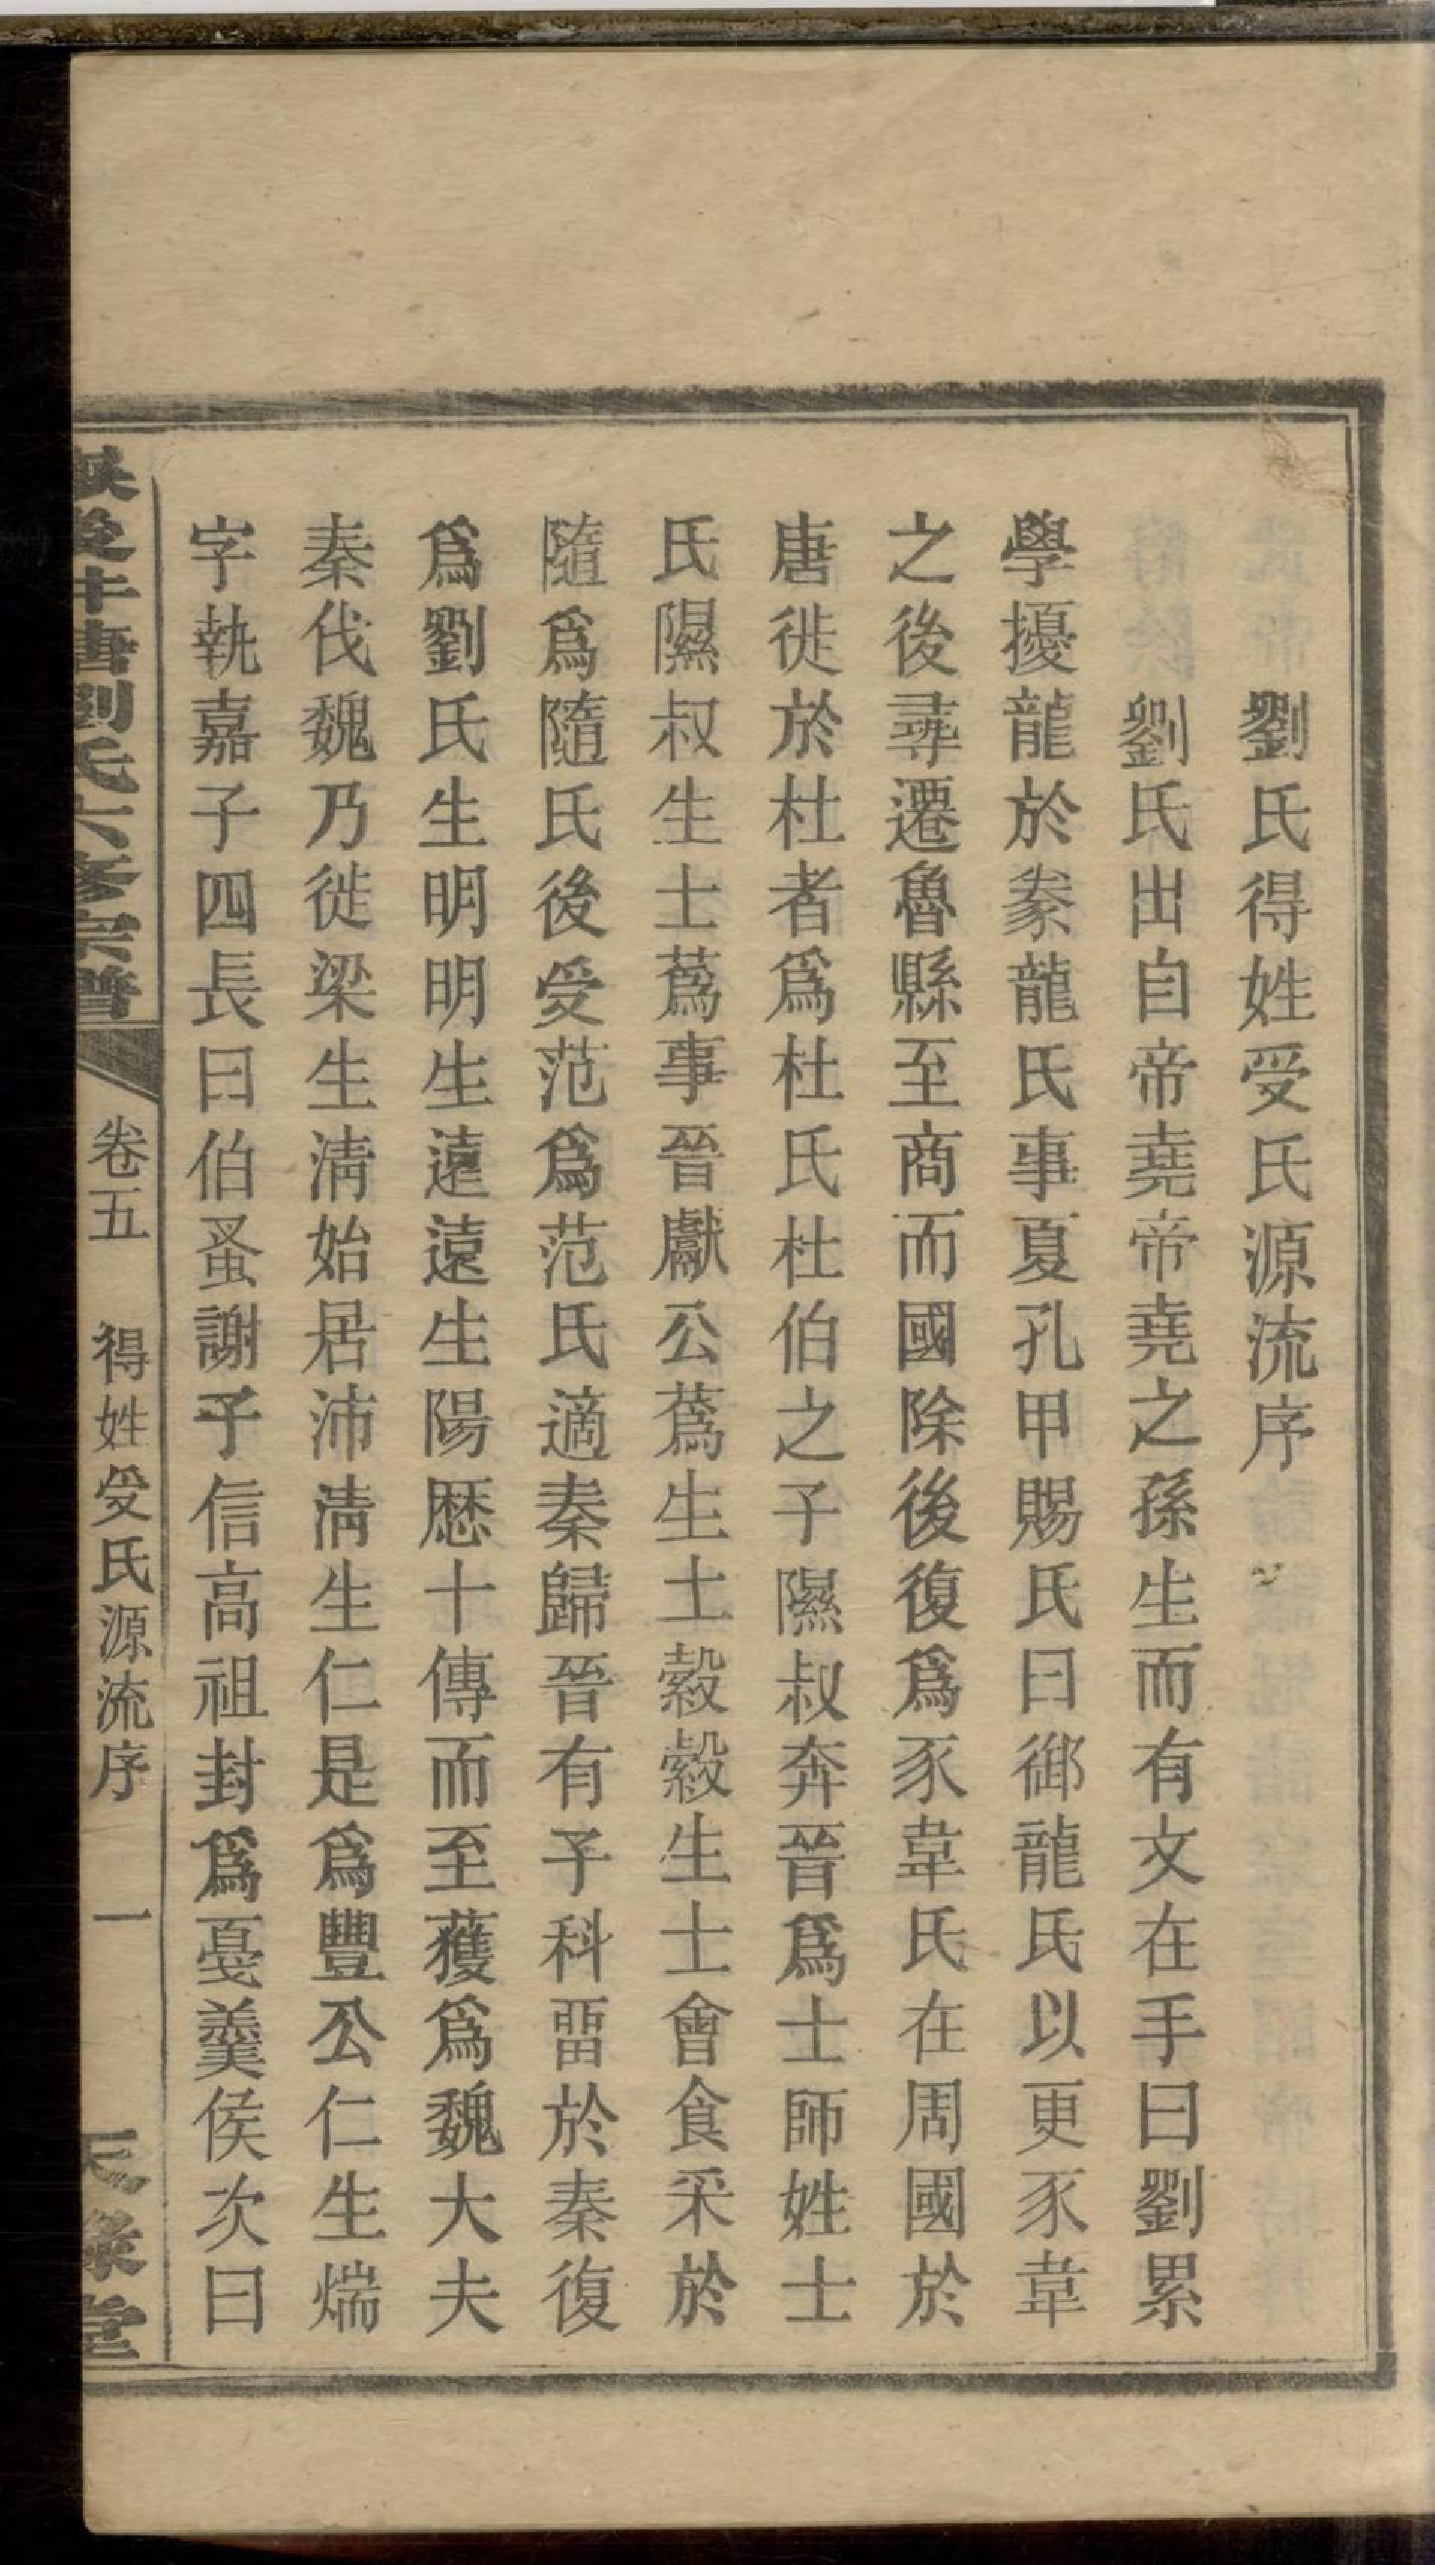 劉氏得姓受氏源流序
劉氏出自帝堯帝堯之孫生而有文在手曰劉累
學擾龍於豢龍氏事夏孔甲賜氏曰御龍氏以更豕韋
之後尋遷魯縣至商而國除後復爲豕韋氏在周國於
唐徙於杜者爲杜氏杜伯之子隰叔奔晉爲士師姓士
氏隰叔生士蔿事晉獻公蔿生士縠縠生士會食采於
隨爲隨氏後受范爲范氏適秦歸晉有子科畱於秦復
爲劉氏生明明生遠遠生陽歷十傳而至獲爲魏大夫
秦伐魏乃徙梁生淸始居沛淸生仁是爲豐公仁生煓
字執嘉子四長曰伯蚤謝子信高祖封爲戞羹侯次曰
唐劉氏六修宗譜
卷五
得姓受氏源流序
一
堂